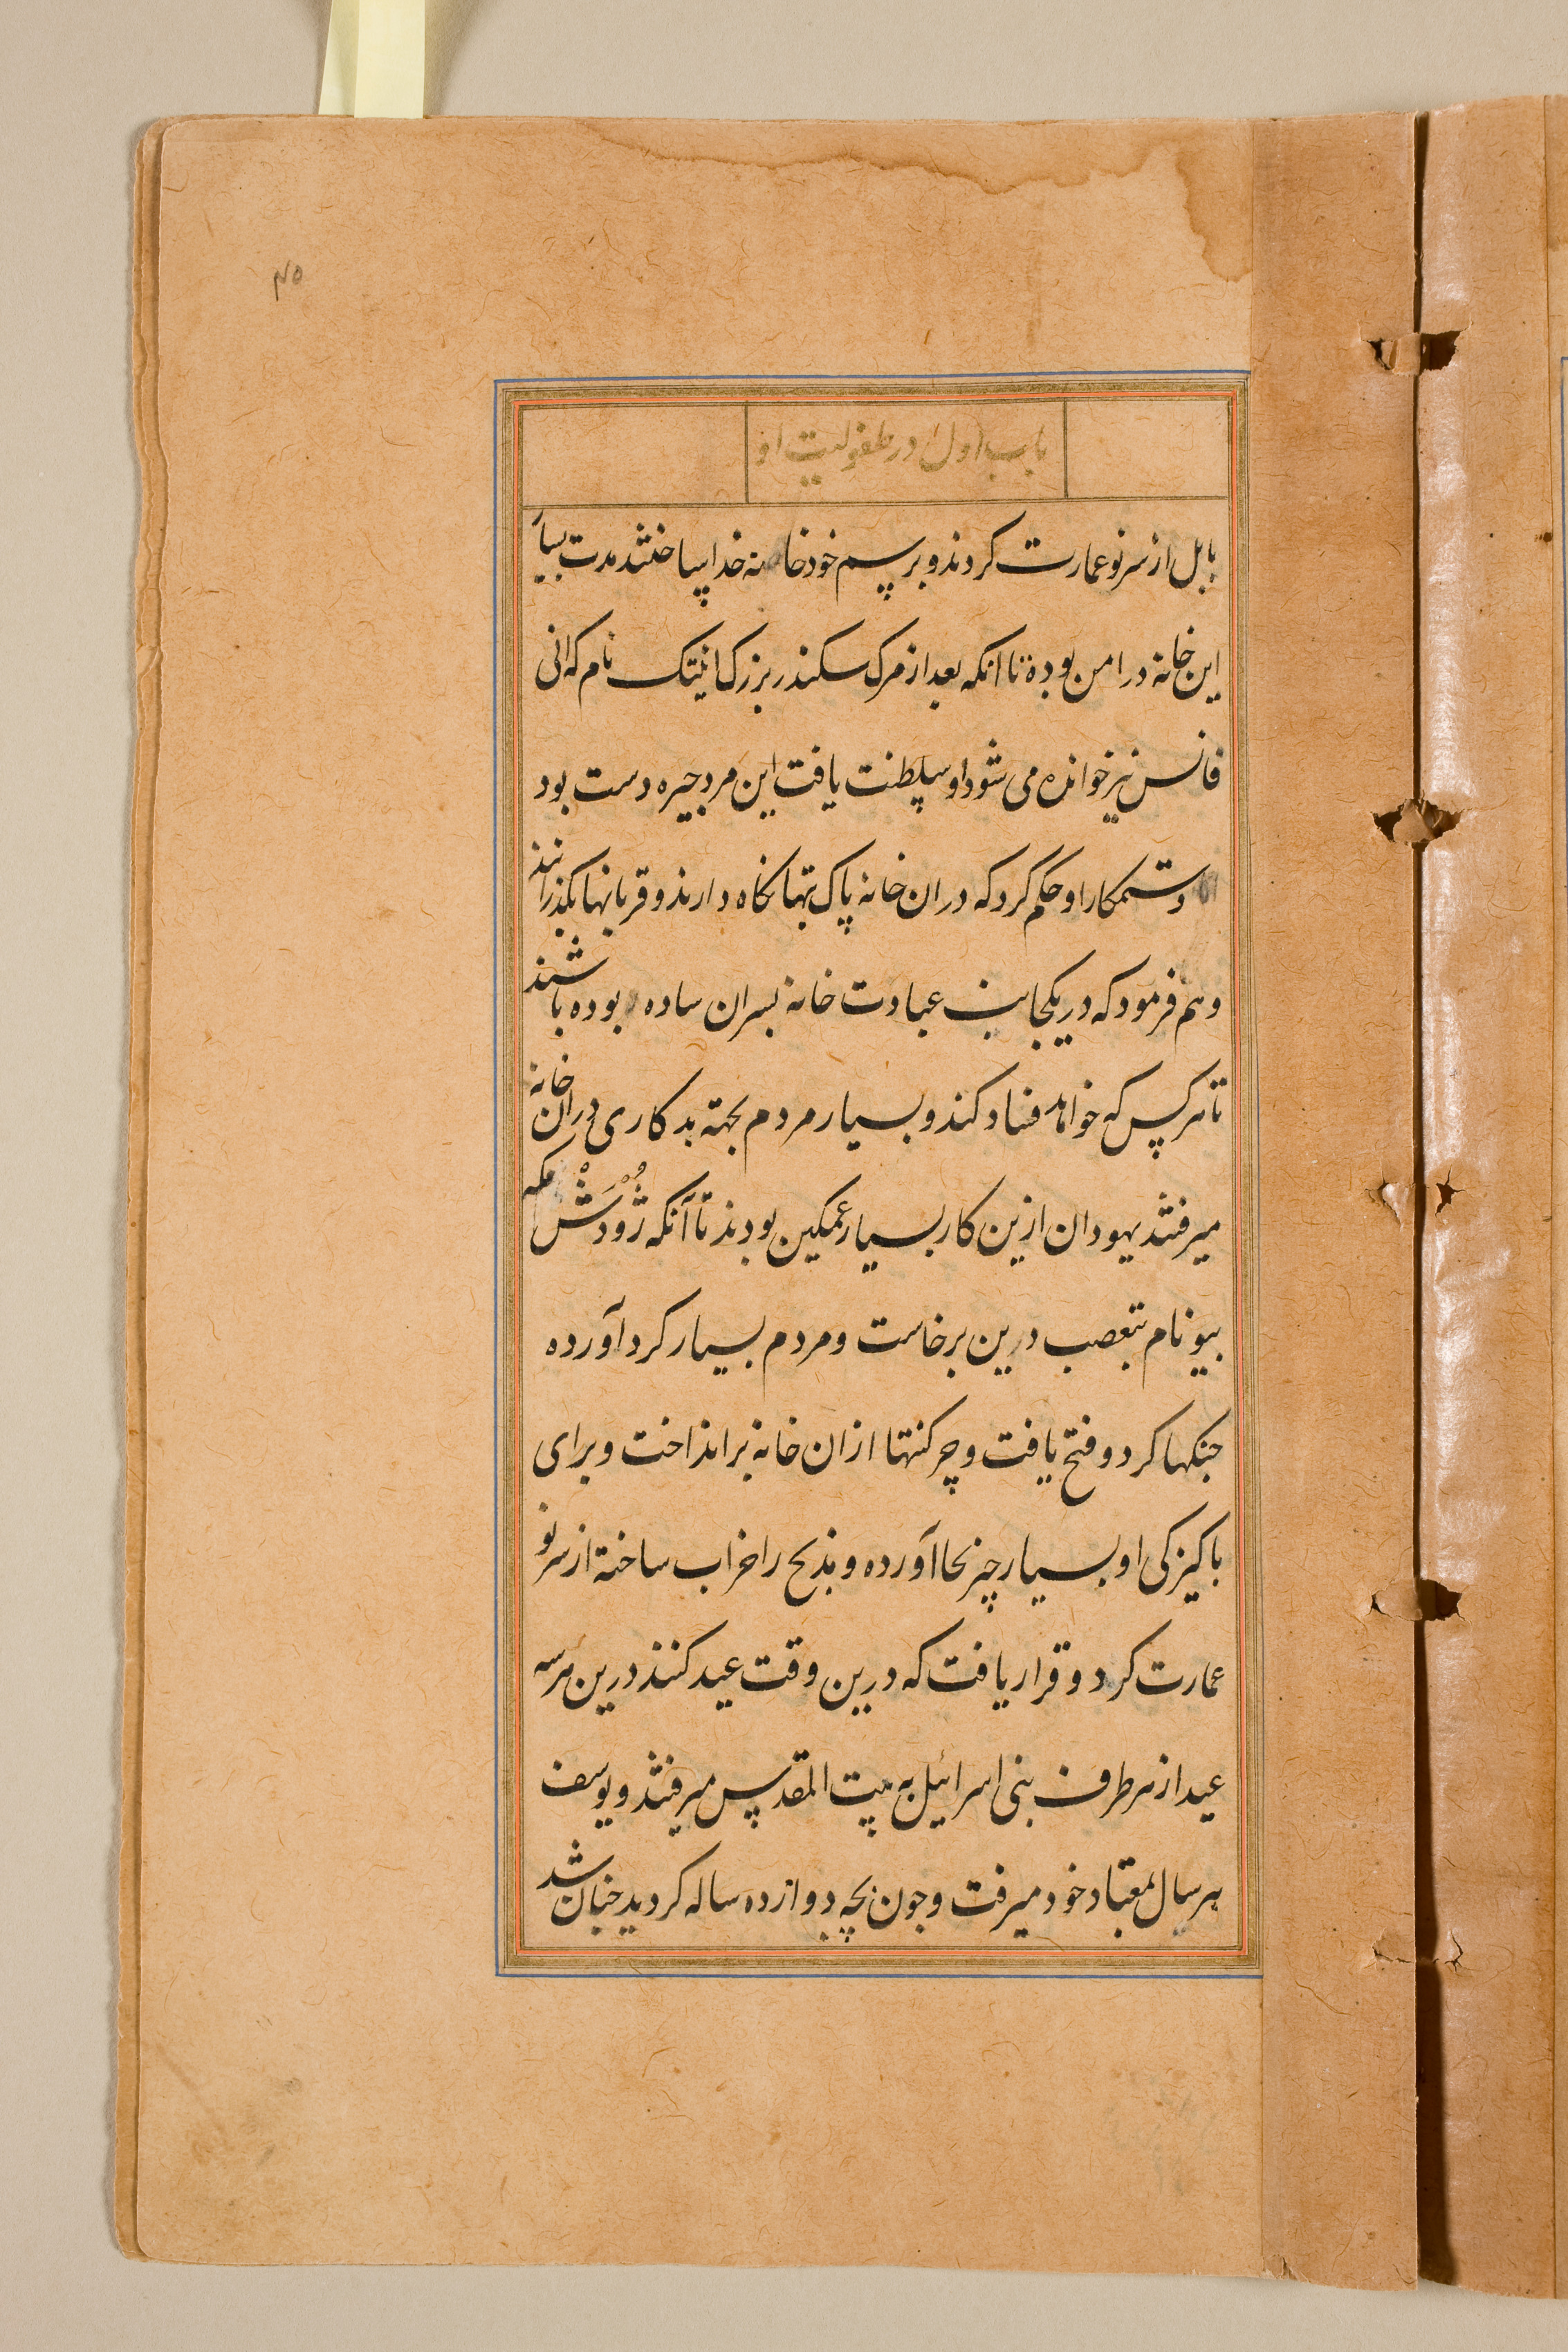 ۴۵
باب اول در طفولیت او
بابل از سر نو عمارت کردند و برسم خود خانه خدا ساختند مدت بسیا
این خانه در امن بوده تا انکه بعد از مرک سکندر بزرک انیتک نام که انی
فانس نیز خوانده می شود او سلطنت یافت این مرد چیره دست بود
و ستمکار او حکم کرد که دران خانه پاک بتها نکاه دارند و قربانیها بکذرانند
و هم فرمود که در یکجانب عبادت خانه پسران ساده بوده باشند
تا هرکس که خواهد فساد کند و بسیار مردم بجهة بدکاری دران خانه
میرفتند یهودان ازین کار بسیار غمکین بودند تا آنکه ژودش مکه
بیو نام بتعصب درین برخاست و مردم بسیار کرد آورده
جنکها کرد و فتح یافت و چرکنتها ازان خانه برانداخت و برای
پاکیزکی او بسیار چیز بجا آورده و مذبح را خراب ساخته از سر نو
عمارت کرد و قرار یافت که درین وقت عید کنند درین هر سه
عید از هر طرف بنی اسرائیل به بیت المقدس میرفتند و یوسف
هر سال بمعتاد خود میرفت و چون بچه دوازده ساله کردید چنان شد